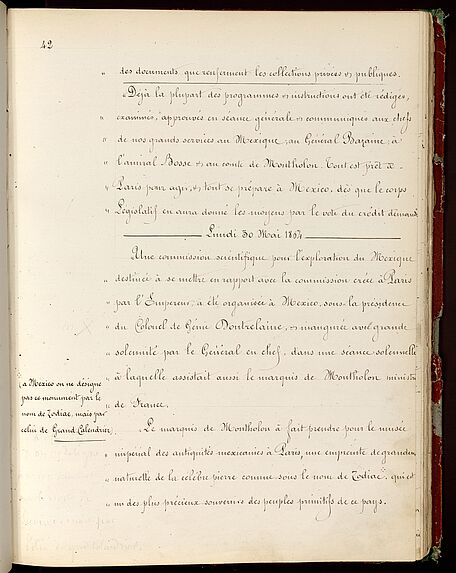 42
" des documents que renferment les collections privées & publiques.
Déjà la plupart des programmes & instructions ont été rédigés,
" examinés, approuvés en séance générale & communiqués aux chefs
" de nos grands services au Mexique, au Général Bazaine, à
" l'amiral Bosse & au comte de Montholon. Tout est prêt à
" Paris pour agir, & tout se prépare à Mexico, dès que le corps
" Législatif en aura donné les moyens par le vote du crédit demandé
Lundi 30 Mai 1864
Une commission scientifique pour l'exploration du Mexique
" destinée à se mettre en rapport avec la commission créée à Paris
" par l'Empereur, a été organisée à Mexico, sous la présidence
" du Colonel de Génie Doutrelaine, & inaugurée avec grande
" solennité par le Général en chef, dans une séance solennelle
" à laquelle assistait aussi le marquis de Montholon ministre
" de France.
(a Mexico on ne désigne
pas ce monument par le
nom de Zodiac, mais par
celui de Grand Calendrier)
Le marquis de Montholon a fait prendre pour le musée
" impérial des antiquités mexicaines à Paris une empreinte de grandeur
" naturelle de la célèbre pierre connue sous le nom de Zodiac, qui est
" un des plus précieux souvenirs des peuples primitifs de ce pays.